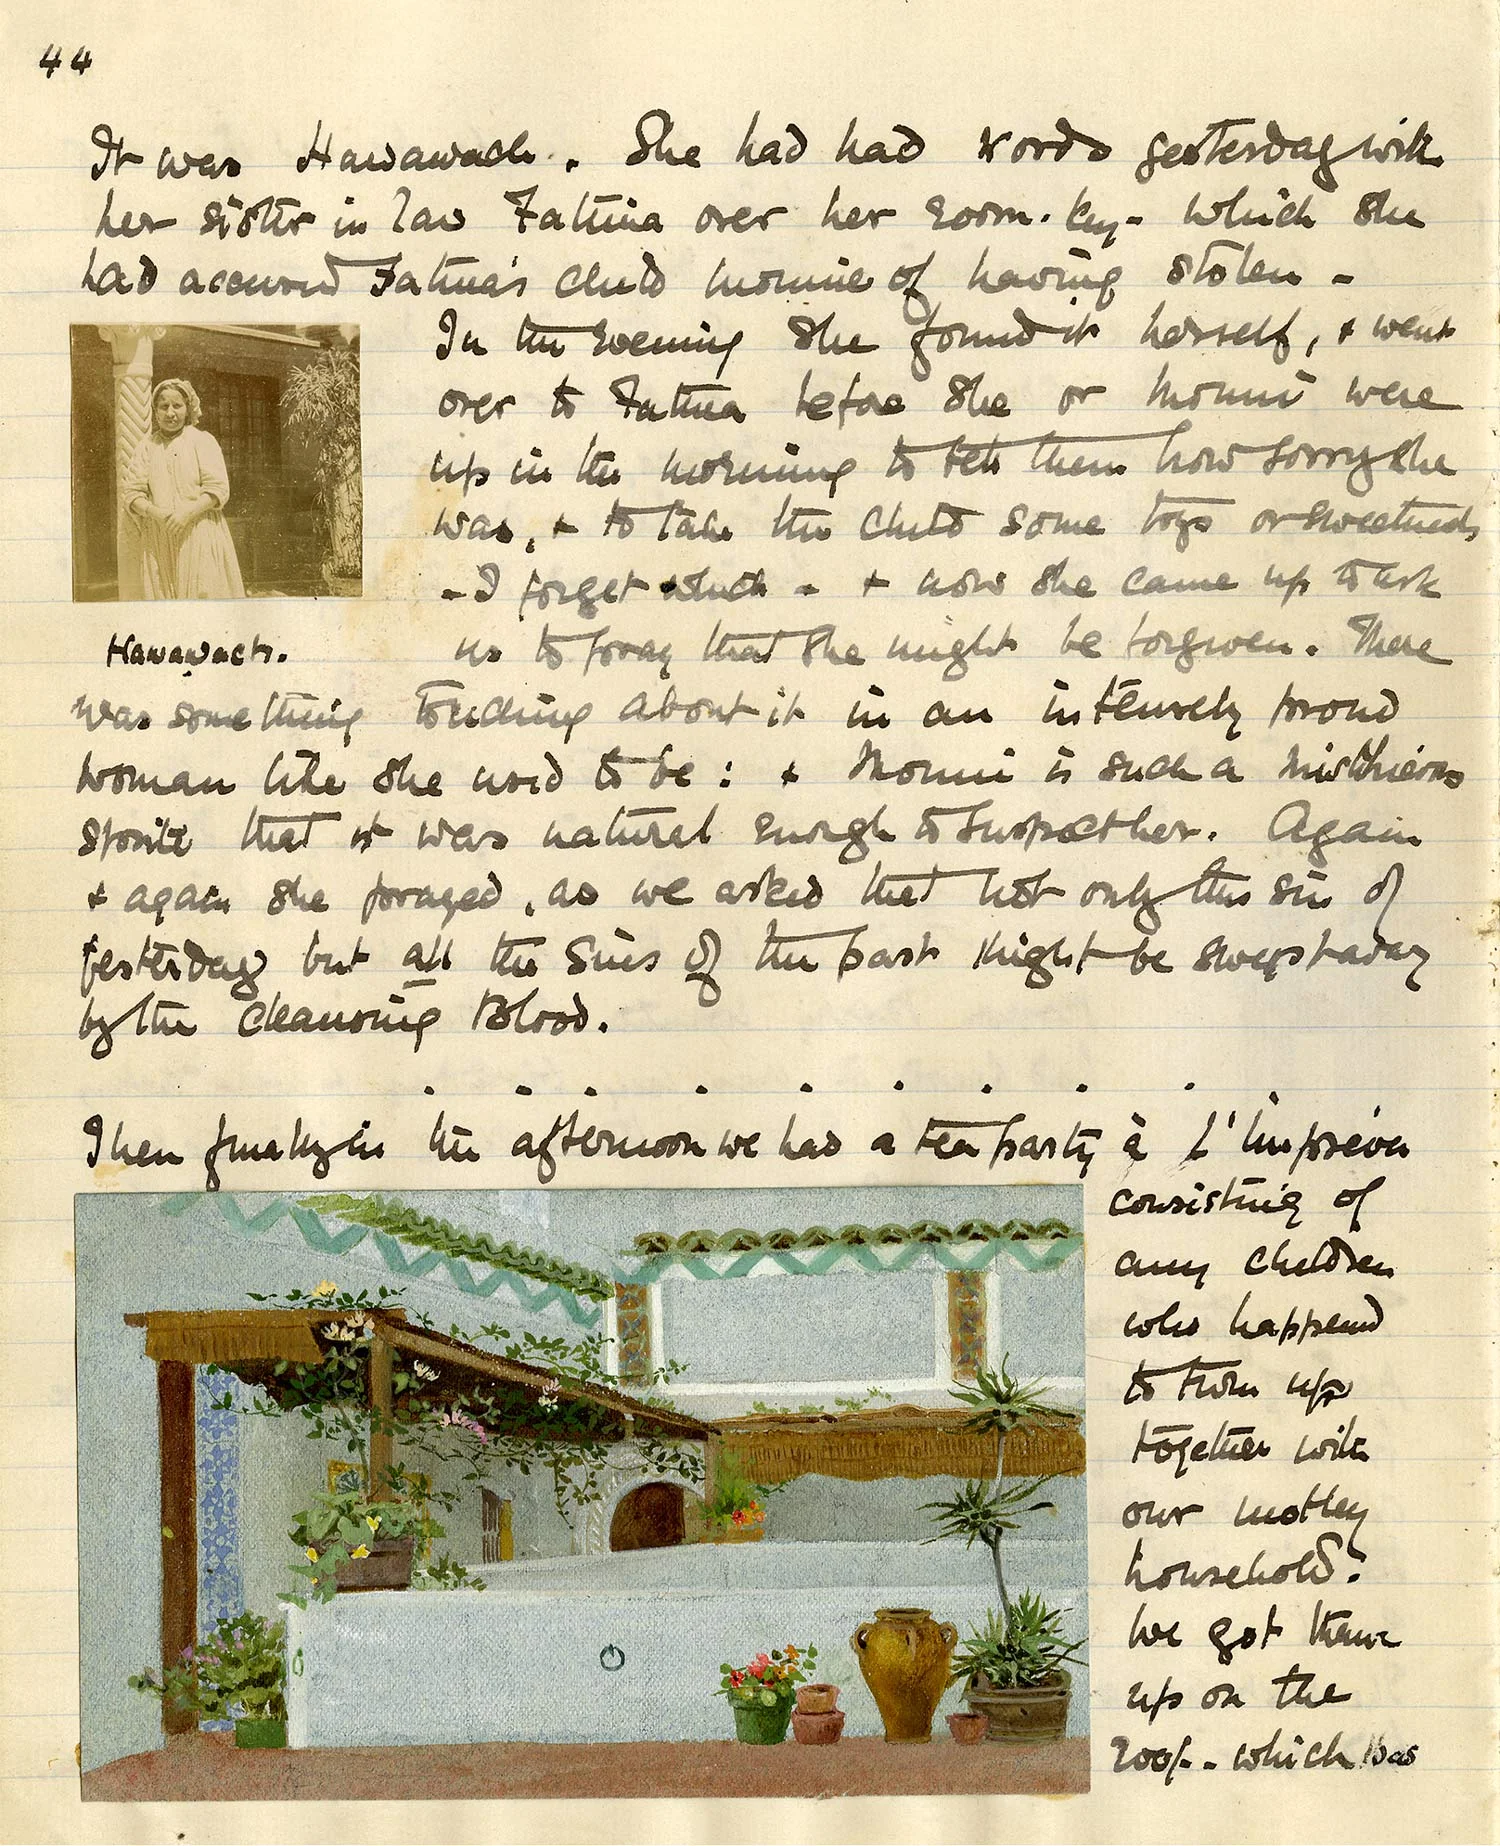 44
It was Hawawach. She had had words yesterday with
her sister in law Fatima over her room-key- which she
had accused Fatima's child Mounie of having stolen -
In the evening she found it herself, & went
over to Fatima before she or Mounie were
up in the morning to tell them how sorry she
was, & to take the child some toys or sweetmeats
- I forget which - & now she came up to ask
Hawawach.
us to pray that she might be forgiven. There
was something touching about it in an intensely proud
woman like she used to be: & Mounie is such a mischievous
sprite that it was natural enough to suspect her. Again
& again she prayed, as we asked that not only this sin of
yesterday but all the sins of the past might be swept away
by the Cleansing Blood.
. . . . . . . . .
Then finally in the afternoon we had a tea party à l'imprévu
consisting of
any children
who happened
to turn up
together with
our motley
household:
We got them
up on the
roof - which has